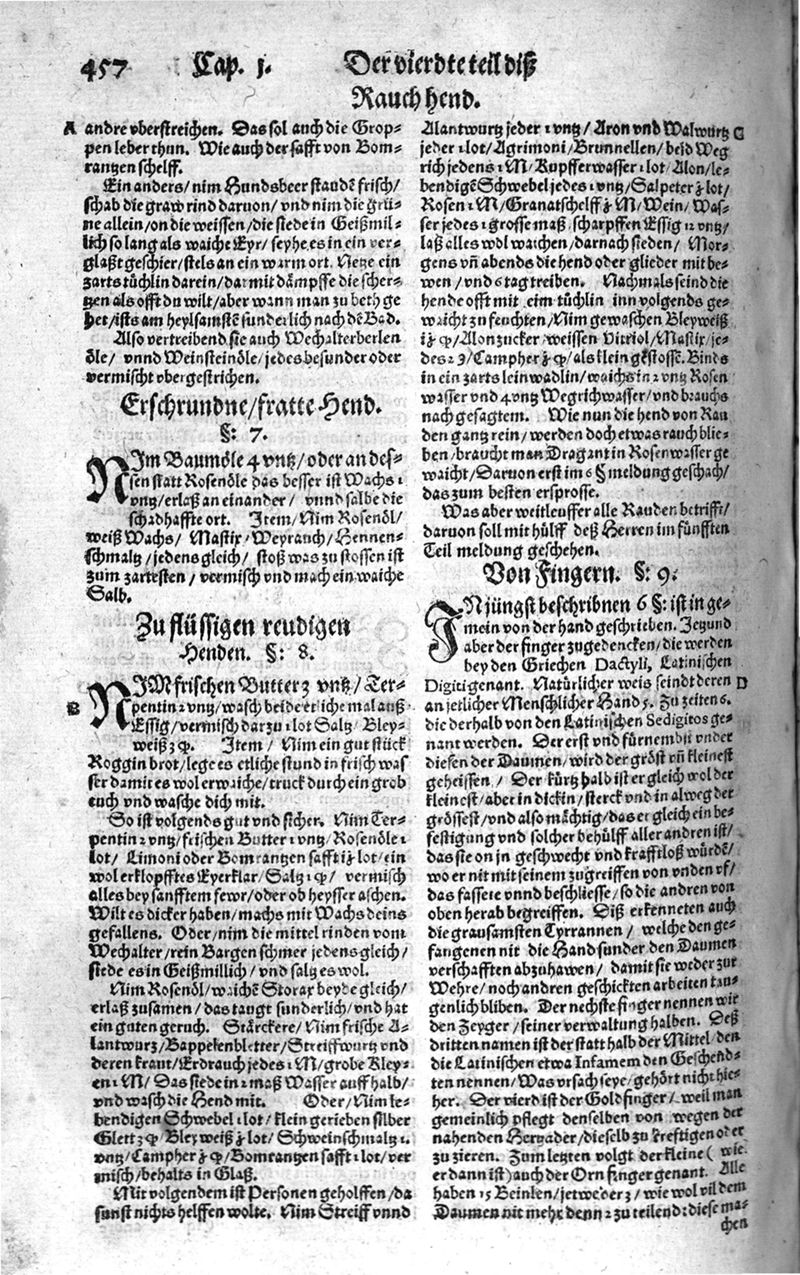 457 Cap. 1. Der vierdte teil diß
Rauch hend.
A andre vberstreichen. Das sol auch die Grop-
pen leber thun. Wie auch der safft von Bom-
rantzen schelff.
Ein anders/ nim Hundsbeer staudē frisch/
schab die graw rind daruon/ vnd nim die grü-
ne allein/ on die weissen/ die siede in Geißmil-
lich so lang als waiche Eyr/ seyhe es in ein ver-
glaßt geschier/ stels an ein warm ort. Netze ein
zarts tüchlin darein/ dar mit dämpffe die scher-
tzen als offt du wilt/ aber wann man zu beth ge
het/ ists am heylsamstē sunderlich nach dē Bad.
Also vertreibend sie auch Wechalterberlen
öle/ vnnd Weinsteinöle/ jedes besunder oder
vermischt vbergestrichen.
Erschrundne/ fratte Hend.
§: 7.
NIm Baumöle 4 vntz/ oder an des-
sen statt Rosenöle das besser ist Wachs 1
vntz/ erlaß an einander/ vnnd salbe die
schadhaffte ort. Item/ Nim Rosenöl/
weiß Wachs/ Mastix/ Weyrauch/ Hennen-
schmaltz/ jedens gleich/ stoß was zu stossen ist
zum zartesten/ vermisch vnd mach ein waiche
Salb.
Zu flüssigen reudigen
Henden. §: 8.
B NIM frischen Butter 3 vntz/ Ter-
pentin 2 vntz/ wasch beide etliche mal auß
Essig/ vermisch darzu 1 lot Saltz/ Bley-
weiß 3 qͥ. Item/ Nim ein gut stück
Roggin brot/ lege es etliche stund in frisch was
ser damit es wol erwaiche/ truck durch ein grob
tuch vnd wasche dich mit.
So ist volgends gut vnd sicher. Nim Ter-
pentin 2 vntz/ frischen Butter 1 vntz/ Rosenöle 1
lot/ Limoni oder Bomrantzen safft lot/ ein
wol erklopfftes Eyerklar/ Saltz / vermisch
alles bey sanfftem fewr/ oder ob heysser aschen.
Wilt es dicker haben/ machs mit Wachs deins
gefallens. Oder/ nim die mittel rinden vom
Wechalter/ rein Bargen schmer jedens gleich/
siede es in Geißmillich/ vnd saltz es wol.
Nim Rosenöl/ waichē Storax beyde gleich/
erlaß zusamen/ das taugt sunderlich/ vnd hat
ein guten geruch. Stärckere/ Nim frische A-
lantwurz/ Bappelenbletter/ Streiffwurtz vnd
deren kraut/ Erdrauch jedes 1 M/ grobe Kley-
en 1 M/ Das siede in 2 maß Wasser auff halb/
vnd wasch die Hend mit. Oder/ Nim le-
bendigen Schwebel 1 lot/ klein gerieben silber
Glett Bleyweiß lot/ Schweinschmaltz 1
vntz/ Campher Bomrantzen safft 1 lot/ ver
misch/ behalts in Glaß.
Mit volgendem ist Personen geholffen/ da
sunst nichts helffen wolte. Nim Streiff vnnd
Alantwurtz jeder 1 vntz/ Aron vnd Walwurtz C
jeder 1 lot/ Agrimoni/ Brunnellen/ beid Weg
rich jedens 1 M/ Kupfferwasser 1 lot/ Alon/ le-
bendigē Schwebel jedes 1 vntz/ Salpeter lot/
Rosen 1 M/ Granatschelff M/ Wein/ Was-
ser jedes 1 grosse maß/ scharpffen Essig 12 vntz/
laß alles wol waichen/ darnach sieden/ Mor-
gens vñ abends die hend oder glieder mit be-
wen/ vnd 6 tag treiben. Nachmals seind die
hende offt mit eim tüchlin inn volgends ge-
waicht zu feuchten/ Nim gewaschen Bleyweiß
Alonzucker/ weissen Vitriol/ Mastix/ je-
des Campher als klein gestossē. Binds
in ein zarts leinwadlin/ waichs in 2 vntz Rosen
wasser vnd 4 vntz Wegrichwasser/ vnd brauchs
nach gesagtem. Wie nun die hend von Rau
den gantz rein/ werden doch etwas rauch blie-
ben/ braucht man Dragant in Rosenwasser ge
waicht/ Daruon erst im 6 § meldung geschach/
das zum besten ersprosse.
Was aber weitleuffer alle Rauden betrifft/
daruon soll mit hülff deß Herren im fünfften
Teil meldung geschehen.
Von Fingern. §: 9.
IN jüngst beschribnen 6 §: ist in ge-
mein von der hand geschrieben. Jetzund
aber der finger zugedencken/ die werden
bey den Griechen Dactyli, Latinischen
Digiti genant. Natürlicher weis seindt deren D
an jetlicher Menschlicher Hand 5. Zu zeiten 6.
die derhalb von den Latinischen Sedigitos ge-
nant werden. Der erst vnd fürnembst vnder
diesen der Daumen/ wird der gröst vñ kleinest
geheissen/ Der kürtz halb ist er gleich wol der
kleinest/ aber in dickin/ sterck vnd in alweg der
grössest/ vnd also mächtig/ das er gleich ein be-
festigung vnd solcher behülff aller andren ist/
das sie on jn geschwecht vnd krafftloß würdē/
wo er nit mit seinem zugreiffen von vnden vf/
das fassete vnnd beschliesse/ so die andren von
oben herab begreiffen. Diß erkenneten auch
die grausamsten Tyrannen/ welche den ge-
fangenen nit die Hand sunder den Daumen
verschafften abzuhawen/ damit sie weder zur
Wehre/ noch andren geschickten arbeiten tau-
genlich bliben. Der nechste finger nennen wir
den Zeyger/ seiner verwaltung halben. Deß
dritten namen ist der statt halb der Mittel/ den
die Latinischen etwa Infamem den Geschend-
ten nennen/ Was vrsach seye/ gehört nicht hie-
her. Der vierd ist der Goldfinger/ weil man
gemeinlich pflegt denselben von wegen der
nahenden Hertzader/ dieselb zu kreftigen oder
zu zieren. Zum letzten volgt der kleine (wie
er dann ist) auch der Ornfinger genant. Alle
haben 15 Beinken/ jetweder 3/ wie wol vil dem
Daumen nit mehr denn 2 zu teilend: diese ma-
chen